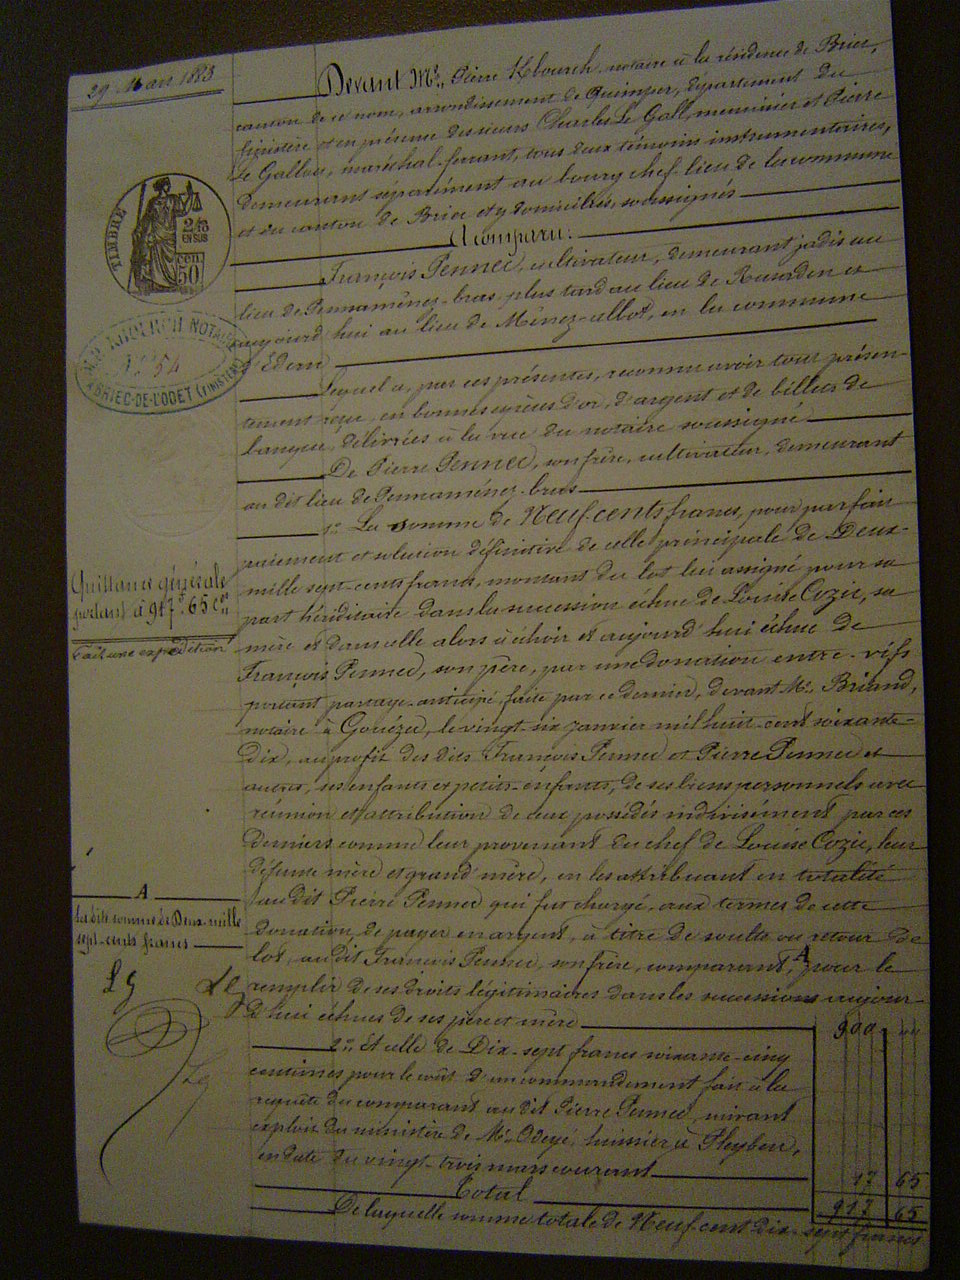 29 Mars 1883
Devant Me. Pierre Khourch, notaire à la résidence de Briec,
canton de ce nom, arrondissement de Quimper, département du
finistère et en présence des sieurs Charles Le Gall, meunier et Pierre
Le Gallou, maréchal-ferrant, tous deux témoins instrumentaires,
demeurant séparément au bourg chef-lieu de la commune
et du canton de Briec et y domiciliés, soussignés
A comparu:
François Pennec, cultivateur, demeurant jadis au
lieu de Pennaménez-bras, plus tard au lieu de et
aujourd'hui au lieu de Ménez-allot, en la commune
d'Edern
Lequel a, par ces présentes, reconnu avoir tout présen-
tement reçu en bonnes espèces d'or, d'argent et de billets de
banque, délivrées à la vue du notaire soussigné
De Pierre Pennec, son frère, cultivateur, demeurant
au dit lieu de Pennaménez-bras
1o. La somme de Neuf cents francs, pour parfait
paiement et solution définitive de celle principale de Deux-
mille sept-cents francs, montant du lot lui assigné pour sa
part héréditaire dans la succession échue de Louise Cozic, sa
mère et dans elle alors à échoir et aujourd'hui échue de
François Pennec, son père, par une donation entre-vifs
portant partage anticipé, faite par ce dernier, devant Me. Briand,
notaire à Gouézec, le vingt-six janvier mil huit-cent soixante-
dix, au profit des dits François Pennec et Pierre Pennec et
autres, ses enfants et petits-enfants, de ses biens personnels avec
réunion et attribution de ceux possédés indivisément par ces
derniers comme leur provenant du chef de Louise Cozic, leur
défunte mère et grand'mère, en les attribuant en totalité
au dit Pierre Pennec qui fut chargé, aux termes de cette
donation, de payer en argent, à titre de soulte ou retour de
lot, au dit François Pennec, son frère, comparant, A pour le
remplir de ses droits légitimaires dans les successions aujour-
d'hui échues de ses père et mère 900 "
2o. Et celle de Dix-sept francs soixante-cinq
centimes pour le coût d'un commandement fait à la
requête du comparant au dit Pierre Pennec, suivant
exploit du ministère de Me. Odeyé, huissier à Pleyben,
en date du vingt-trois mars courant 17 65
Total 917 65
De laquelle somme totale de Neuf-cent dix-sept francs
TIMBRE
2/10
EN SUS
cen
50
Me P. KHOURCH NOTAIRE
No 54
A BRIEC-DE-L'ODET (FINISTERE)
Quittance générale
portant à 917f. 65cen
Fait une expédition
A
La dite somme de Deux-mille
sept-cents francs
Lg